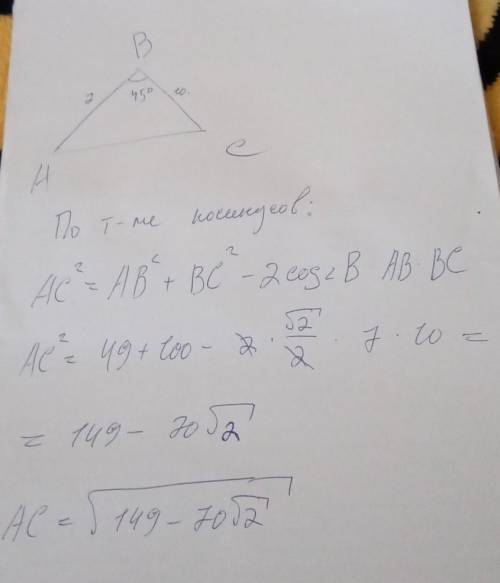 B
7 45° 10.
A C
По т-ме косинусов:
AC² = AB² + BC² - 2cos∠B AB·BC
AC² = 49 + 100 - 2 · √2/2 · 7 · 10 =
= 149 - 70√2
AC = √(149 - 70√2)